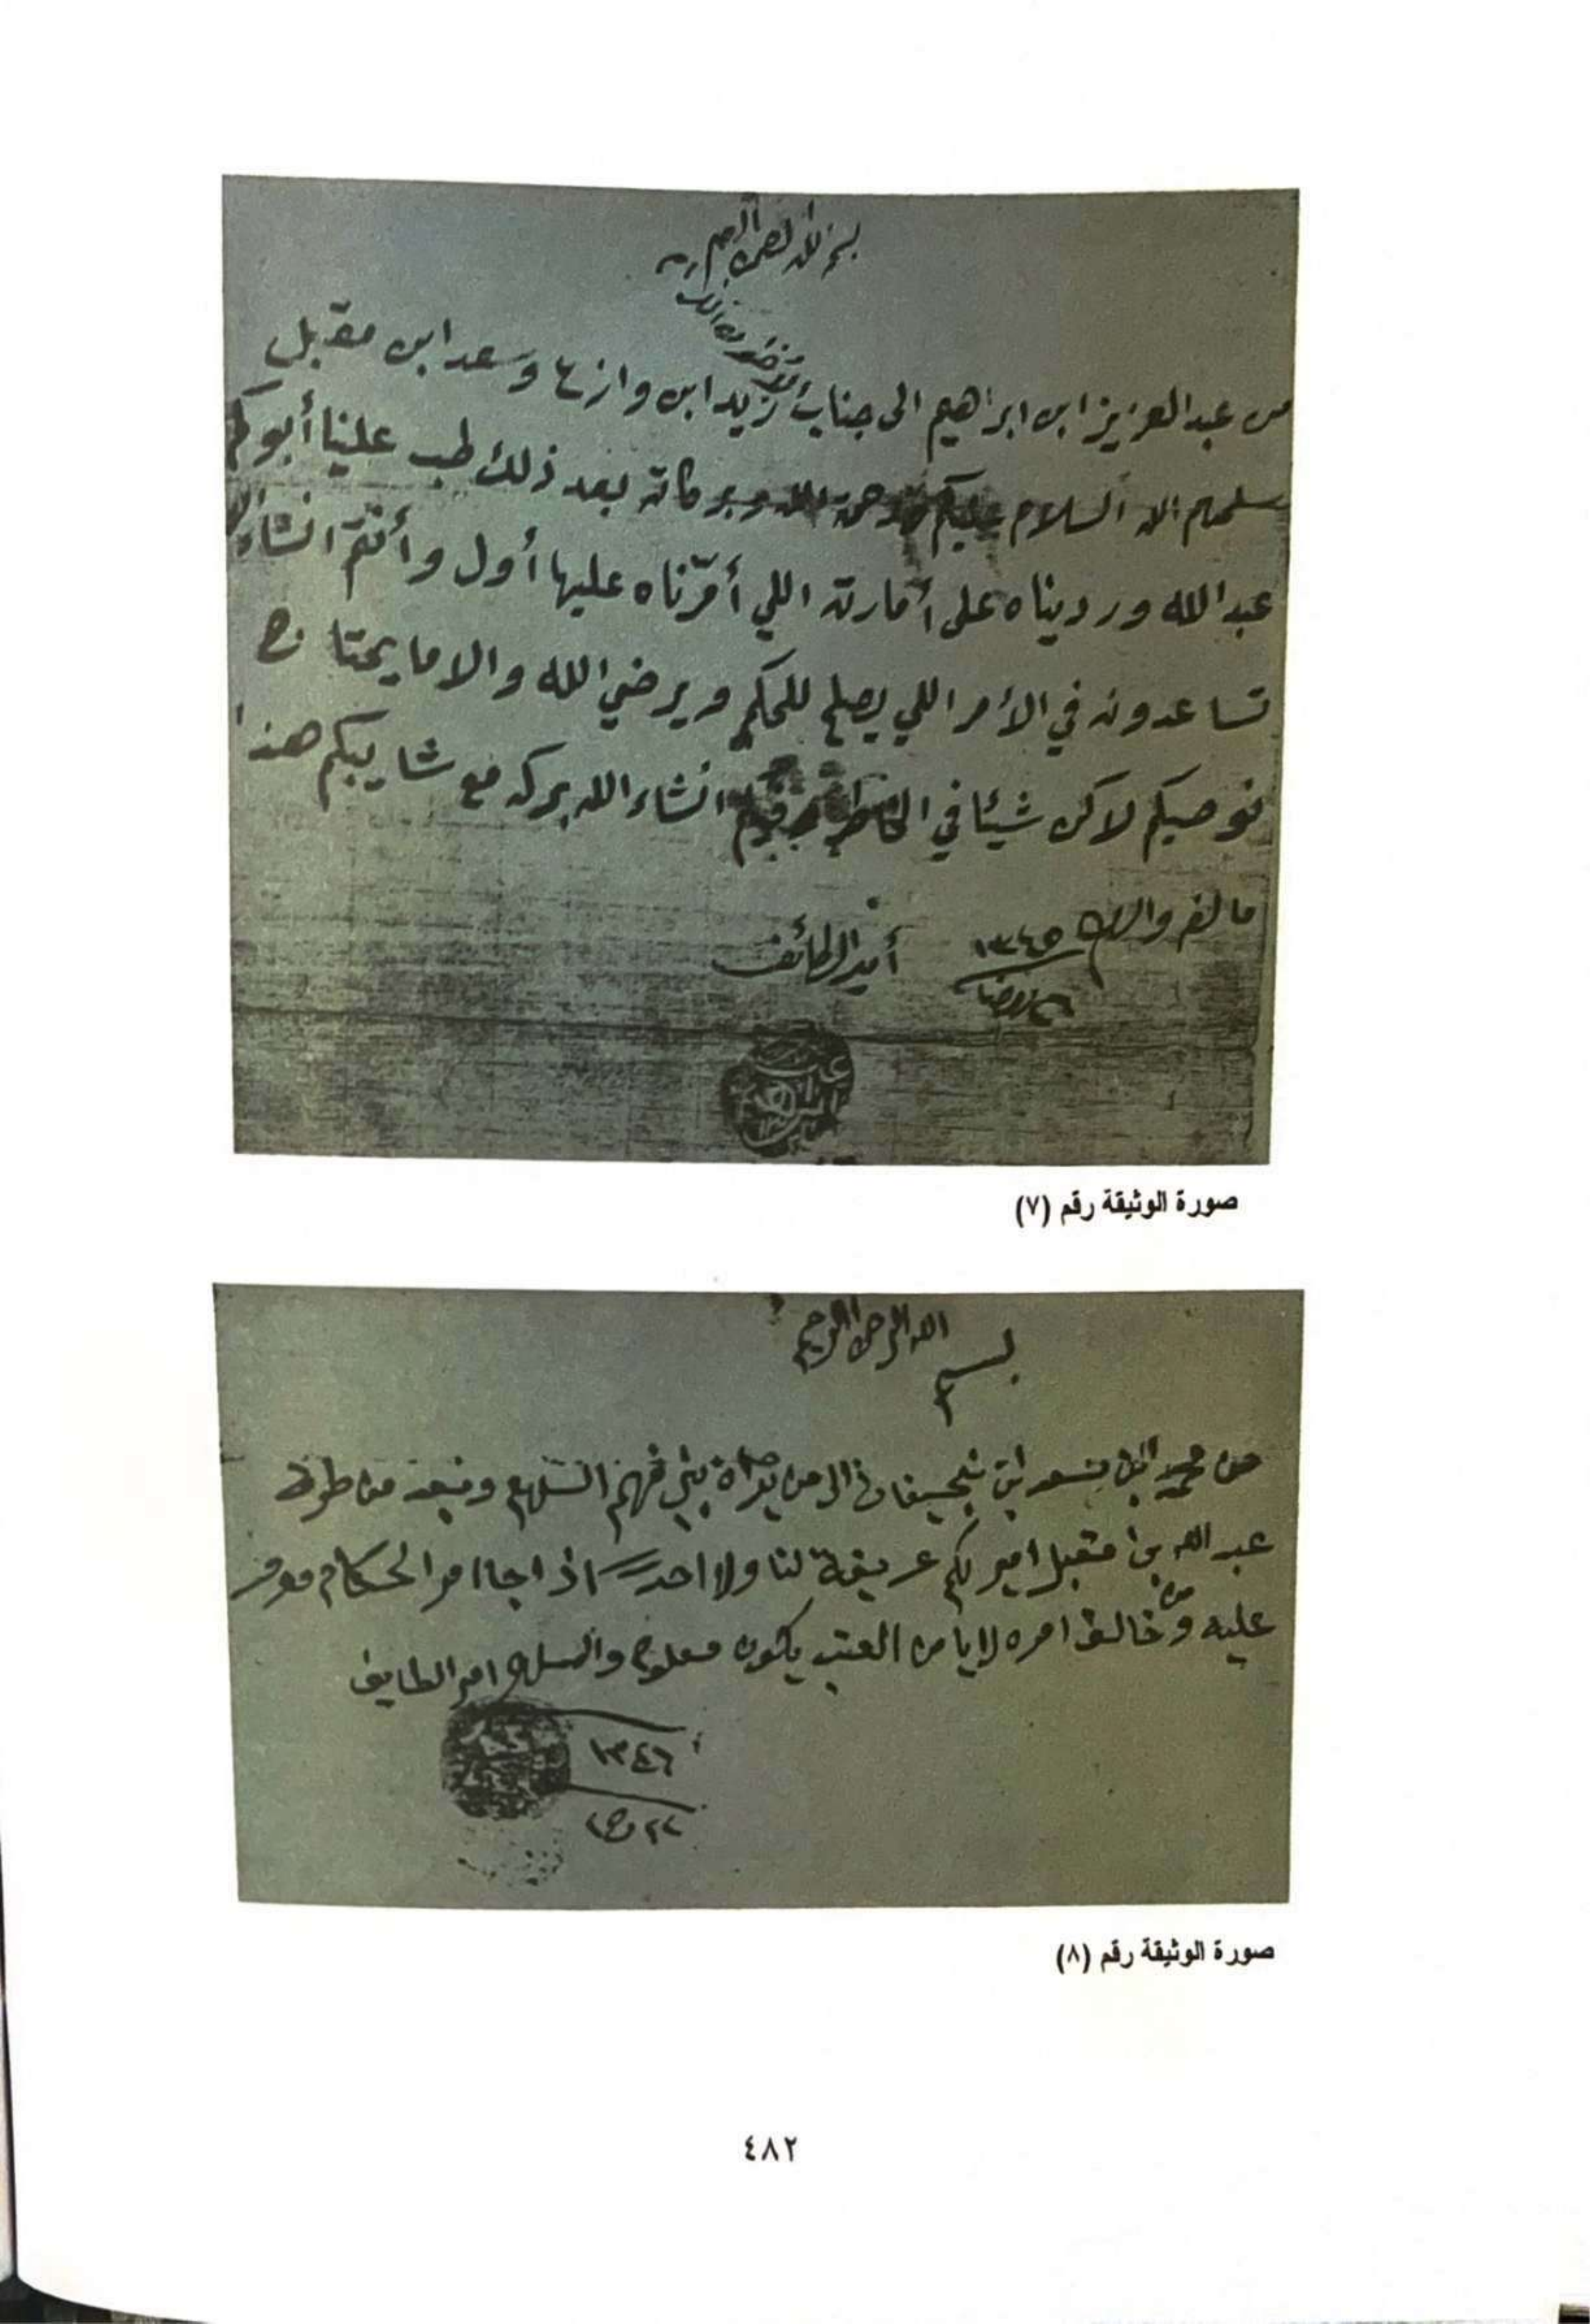 بسم الله الرحمن الرحيم
من عبد العزيز ابن ابراهيم الى جناب زيد ابن وازع وسعد ابن مقبل
سلمهم الله السلام عليكم ورحمة الله وبركاته بعد ذلك طب علينا أبوكم
عبد الله ورديناه على أمارته اللي أمّرناه عليها أول وأنتم انشاء الله
تساعدونه في الأمر اللي يصلح للحكم ويرضي الله والا ما يحتاج
نوصيكم لاكن شيئا في الخاطر انشاء الله بركه مع شايبكم هذا
ما لزم والسلام ١٣٤٥ أمير الطائف
٢٦ رمضان
صورة الوثيقة رقم (٧)
بسم الله الرحمن الرحيم
من محمد ابن سعد ابن الى من يراه بني فهم السلام وبعد من طرف
عبد الله بن مقبل امير لكم عريفة لنا ولا احد اذا جا امر الحكام
عليه ومن خالف امره لا يامن العتب يكون معلوم والسلام امير الطايف
١٣٤٦
٢٢
صورة الوثيقة رقم (٨)
٤٨٢